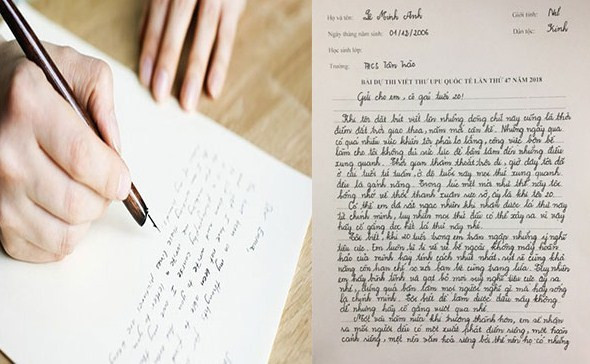 Họ và tên: Lê Minh Anh Giới tính: Nữ
Ngày tháng năm sinh: 01/12/2006 Dân tộc: Kinh
Học sinh lớp:
Trường: THCS Tân Trào
BÀI DỰ THI VIẾT THƯ UPU QUỐC TẾ LẦN THỨ 47 NĂM 2018
Gửi cho em, cô gái tuổi 20!
Khi tôi đặt bút viết lên những dòng chữ này cũng là thời
điểm đất trời giao thoa, năm mới cận kề. Những ngày qua
có quá nhiều việc khiến tôi phải lo lắng, công việc bộn bề
làm cho tôi không đủ sức lực để bận tâm đến những điều
xung quanh. Thời gian thấm thoắt trôi đi, giờ đây tôi đã
ở cái tuổi tứ tuần, ở độ tuổi này mọi thứ xung quanh
đều là gánh nặng. Trong lúc mệt mỏi như thế này tôi
bỗng nhớ về thời thanh xuân rực rỡ, ấy là khi ta 20.
Có thể em đã rất ngạc nhiên khi nhận được lá thư này
từ chính mình, tuy nhiên mọi thứ đều có thể xảy ra vì vậy
hãy cố gắng đọc hết lá thư này nhé.
Tôi biết, khi 20 tuổi trong em tràn ngập những suy nghĩ
tiêu cực. Em luôn tự ti về vẻ bề ngoài không mấy hoàn
hảo của mình hay tính cách nhút nhát, rụt rè cùng khả
năng còn hạn chế so với bạn bè cùng trang lứa. Tuy nhiên
em hãy bình tĩnh và gạt bỏ mọi suy nghĩ tiêu cực ấy ra
nhé, đừng quá bận tâm mọi người nghĩ gì mà hãy sống
là chính mình. Tôi biết để làm được điều này không
dễ nhưng hãy cố gắng vượt qua nhé.
Một vài năm nữa khi trưởng thành hơn, em sẽ nhận
ra mỗi người đều có một xuất phát điểm riêng, một hoàn
cảnh riêng, một nửa năm hoa riêng bởi thế nên họ có những